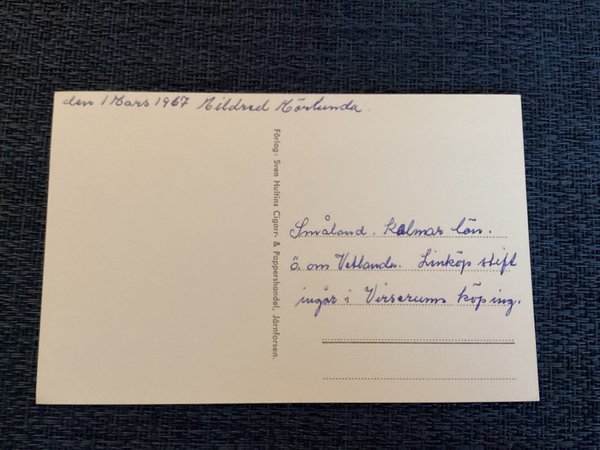 den 1 Mars 1967 Mildred Mörlunda.
Förlag: Sven Hultins Cigarr- & Pappershandel, Järnforsen.
Småland. Kalmar län.
ö. om Vetlanda. Linköp stift
ingår i Virserums köping.